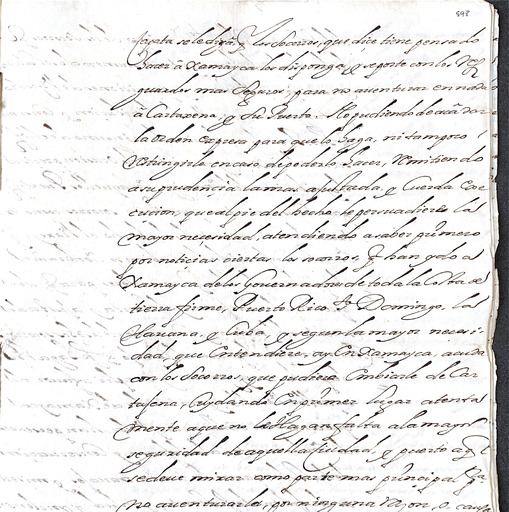 598
Jacata se le diga, q los socorros, que dice tiene pensado
hacer a Xamayca los disponga, y seporte con los res
guardos mas seguros, para no auenturar en nada
a Cartaxena, y su Puerto. No pudiendo de acá dar
la orden expresa para que lo haga, ni tampoco
restringirle en caso de poderlo hacer, remitiendo
a su prudencia la mas ajustada, y cuerda exe
cucion, que al pie del hecho le persuadiere la
mayor necesidad, atendiendo a saber primero
por noticias ciertas los socorros, q han ydo a
Xamayca de los Gouernadores de toda la Costa de
tierra firme, Puerto Rico, Sto Domingo, la
Hauana, y Cuba, y segun la mayor necesi-
dad, que entendiere, ay en Xamayca, acuda
con los socorros, que pudiere embiarle de Car
tagena, cuydando en primer lugar atenta
mente a que no le haga falta a la mayor
seguridad de aquella Ciudad, y puerto a q
se deue mirar como parte mas principal pa
no auenturarla, por ninguna razon, o causa